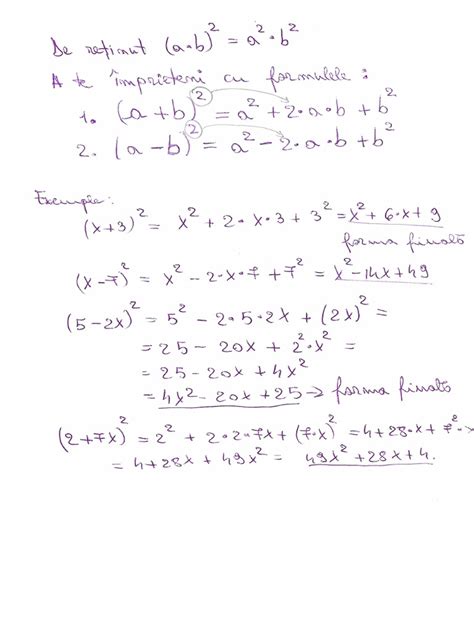 De reținut (a·b)² = a²·b²
A te împrieteni cu formulele:
1. (a+b)² = a² + 2·a·b + b²
2. (a-b)² = a² - 2·a·b + b²
Exemple:
(x+3)² = x² + 2·x·3 + 3² = x² + 6·x + 9
forma finală
(x-7)² = x² - 2·x·7 + 7² = x² - 14x + 49
(5-2x)² = 5² - 2·5·2x + (2x)² =
= 25 - 20x + 2²·x² =
= 25 - 20x + 4x²
= 4x² - 20x + 25 → forma finală
(2+7x)² = 2² + 2·2·7x + (7·x)² = 4 + 28·x + 7²·x²
= 4 + 28x + 49x² = 49x² + 28x + 4.